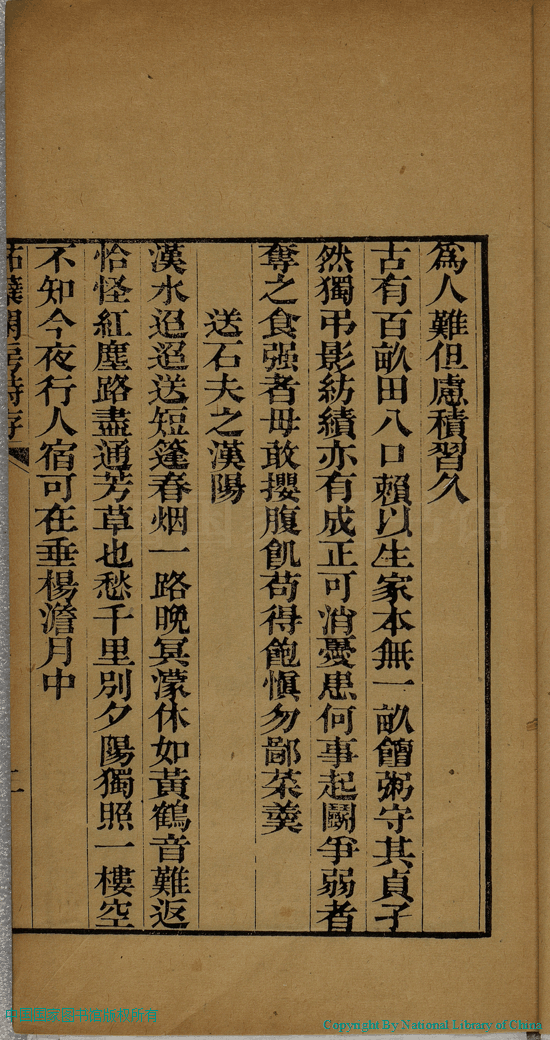 為人難但慮積習久
古有百畝田八口賴以生家本無一畝饘粥守其貞子
然獨弔影紡績亦有成正可消憂患何事起鬭爭弱者
奪之食强者毋敢攖腹飢苟得飽愼勿鄙茶羹
送石夫之漢陽
漢水迢迢送短篷春烟一路晚冥濛休如黃鶴音難返
恰怪紅塵路盡通芳草也愁千里別夕陽獨照一樓空
不知今夜行人宿可在垂楊澹月中
二
中国国家图书馆版权所有
Copyright By National Library of China